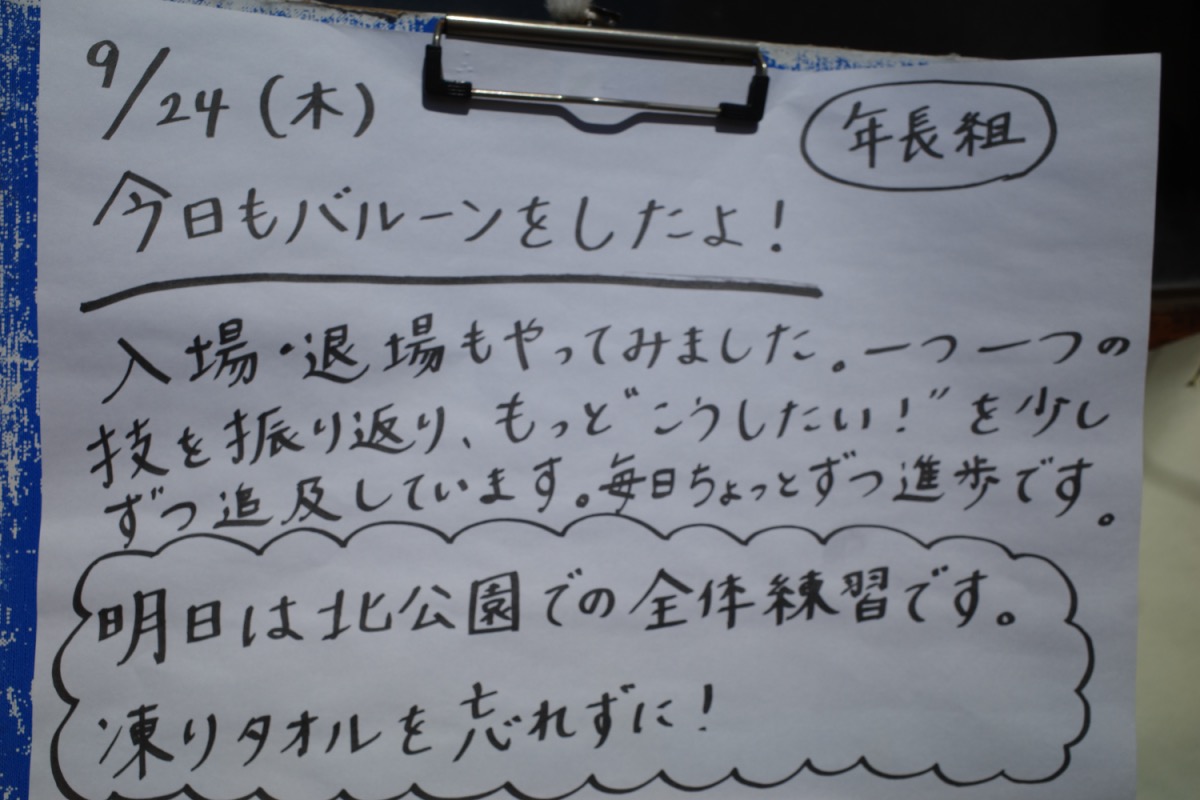 9/24(木)
年長組
今日もバルーンをしたよ!
入場・退場もやってみました。一つ一つの
技を振り返り、もっと"こうしたい!"を少し
ずつ追及しています。毎日ちょっとずつ進歩です。
明日は北公園での全体練習です。
凍りタオルを忘れずに!